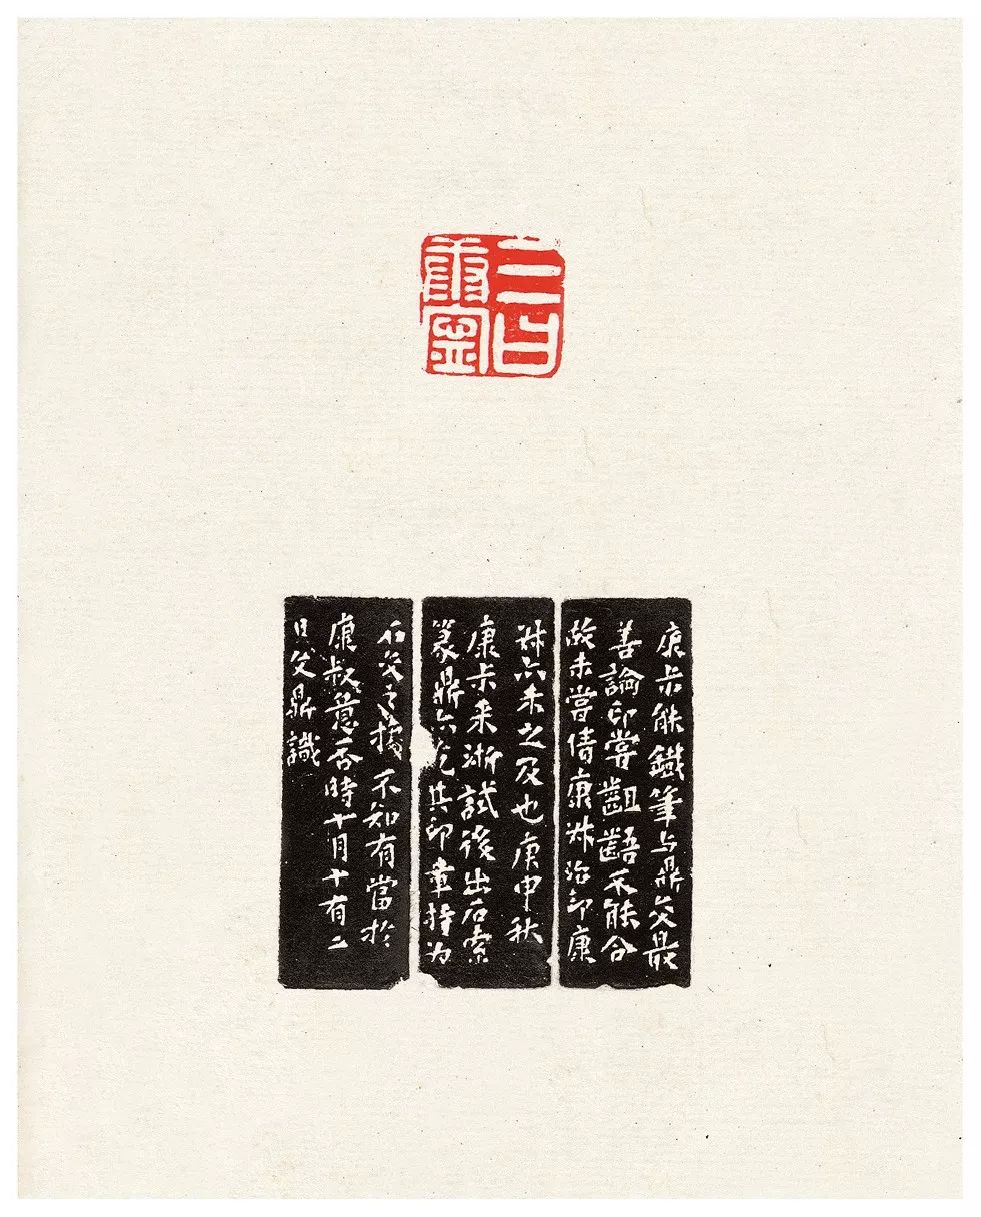 康尗能鐵筆与鼎交最
善論印嘗齟齬不能合
故未嘗倩康尗治印康
尗亦未之及也庚申秋
康尗来浙試後出石索
篆鼎亦乞其印章持为
石交之據不知有當於
康叔意否時十月十有二
日父鼎識